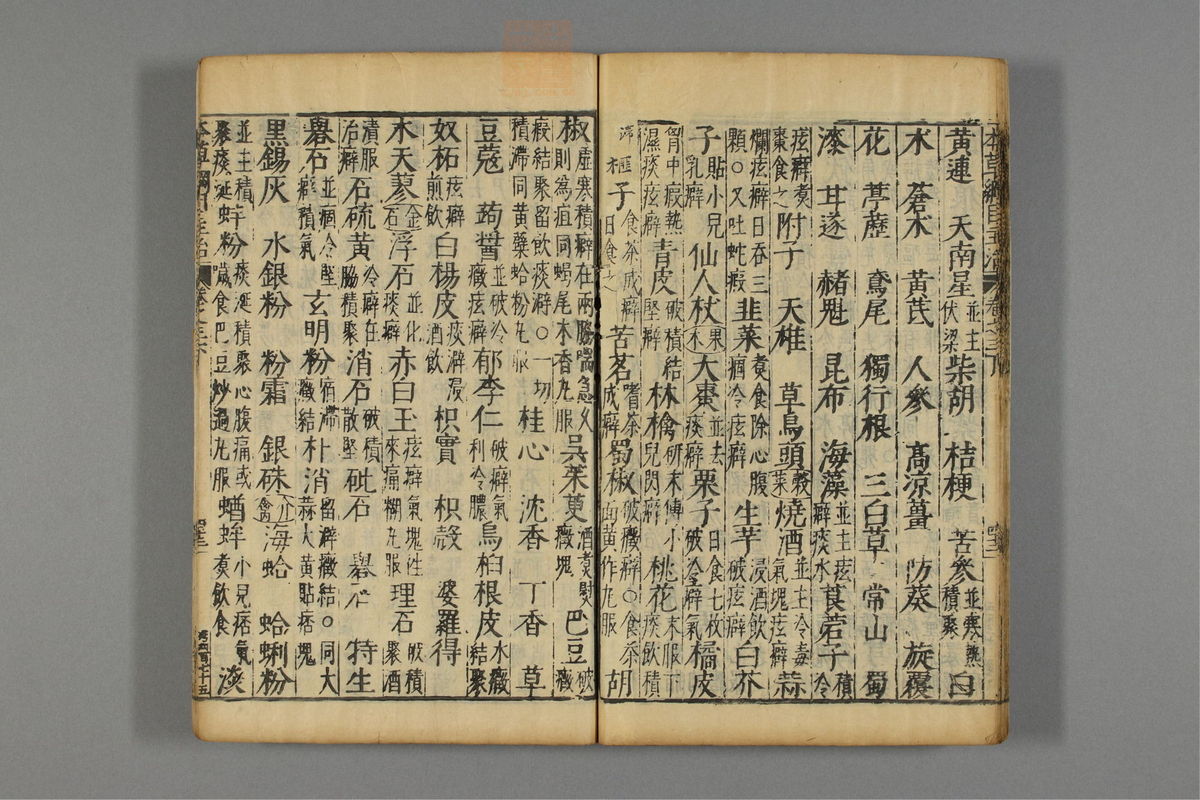 本草綱目主治 卷之三下
黃連 天南星並主伏梁柴胡 桔梗 苦參並寒熱積聚白
朮 蒼朮 黃芪 人參 高涼薑 防葵 旋覆
花 葶藶 鳶尾 獨行根 三白草 常山 蜀
漆 甘遂 赭魁 昆布 海藻並主痃癖痰水莨菪子積冷
痃癖煮棗食之附子 天雄 草烏頭穀菜燒酒並主冷毒氣塊痃癖蒜
爛痃癖日吞三顆○又吐蛇瘕韭菜煮食除心腹痼冷痃癖生芋浸酒飲破痃癖白芥
子貼小兒乳癖仙人杖果木大棗並去痰癖栗子日食七枚破冷癖氣橘皮
胷中瘕熱濕痰痃癖青皮破積結堅癖林檎研末傅小兒閃癖桃花末服下痰飲積
滯榧子食茶成癖日食之苦茗嗜茶成癖蜀椒破癥癖○食茶面黃作丸服胡
椒虛寒積癖在兩脇喘急久則為疽同蝎尾木香丸服吳茱萸酒煮熨癥塊巴豆破癥
癖結聚留飲痰澼○一切積滯同黃蘗蛤粉丸服桂心 沈香 丁香 草
豆蔻 蒟醬並破冷癥痃癖郁李仁破癖氣利冷膿烏桕根皮水癖結聚
奴柘痃癖煎飲白楊皮痰澼浸酒飲枳實 枳殼 婆羅得
木天蓼金石浮石並化痰癖赤白玉痃癖氣塊往來痛糊丸服理石破積聚酒
漬服治癖石硫黃冷癖在脇積聚消石破積散堅砒石 礜石 特生
礜石並痼冷堅癖積氣玄明粉宿滯癥結朴消留澼癥結○同大蒜大黃貼痞塊
黑錫灰 水銀粉 粉霜 銀硃介禽海蛤 蛤蜊粉
並主積聚痰涎蚌粉痰涎積聚心腹痛或噦食巴豆炒過丸服蝤蛑小兒痞氣煮飲食淡
本草綱目主治 卷之三下